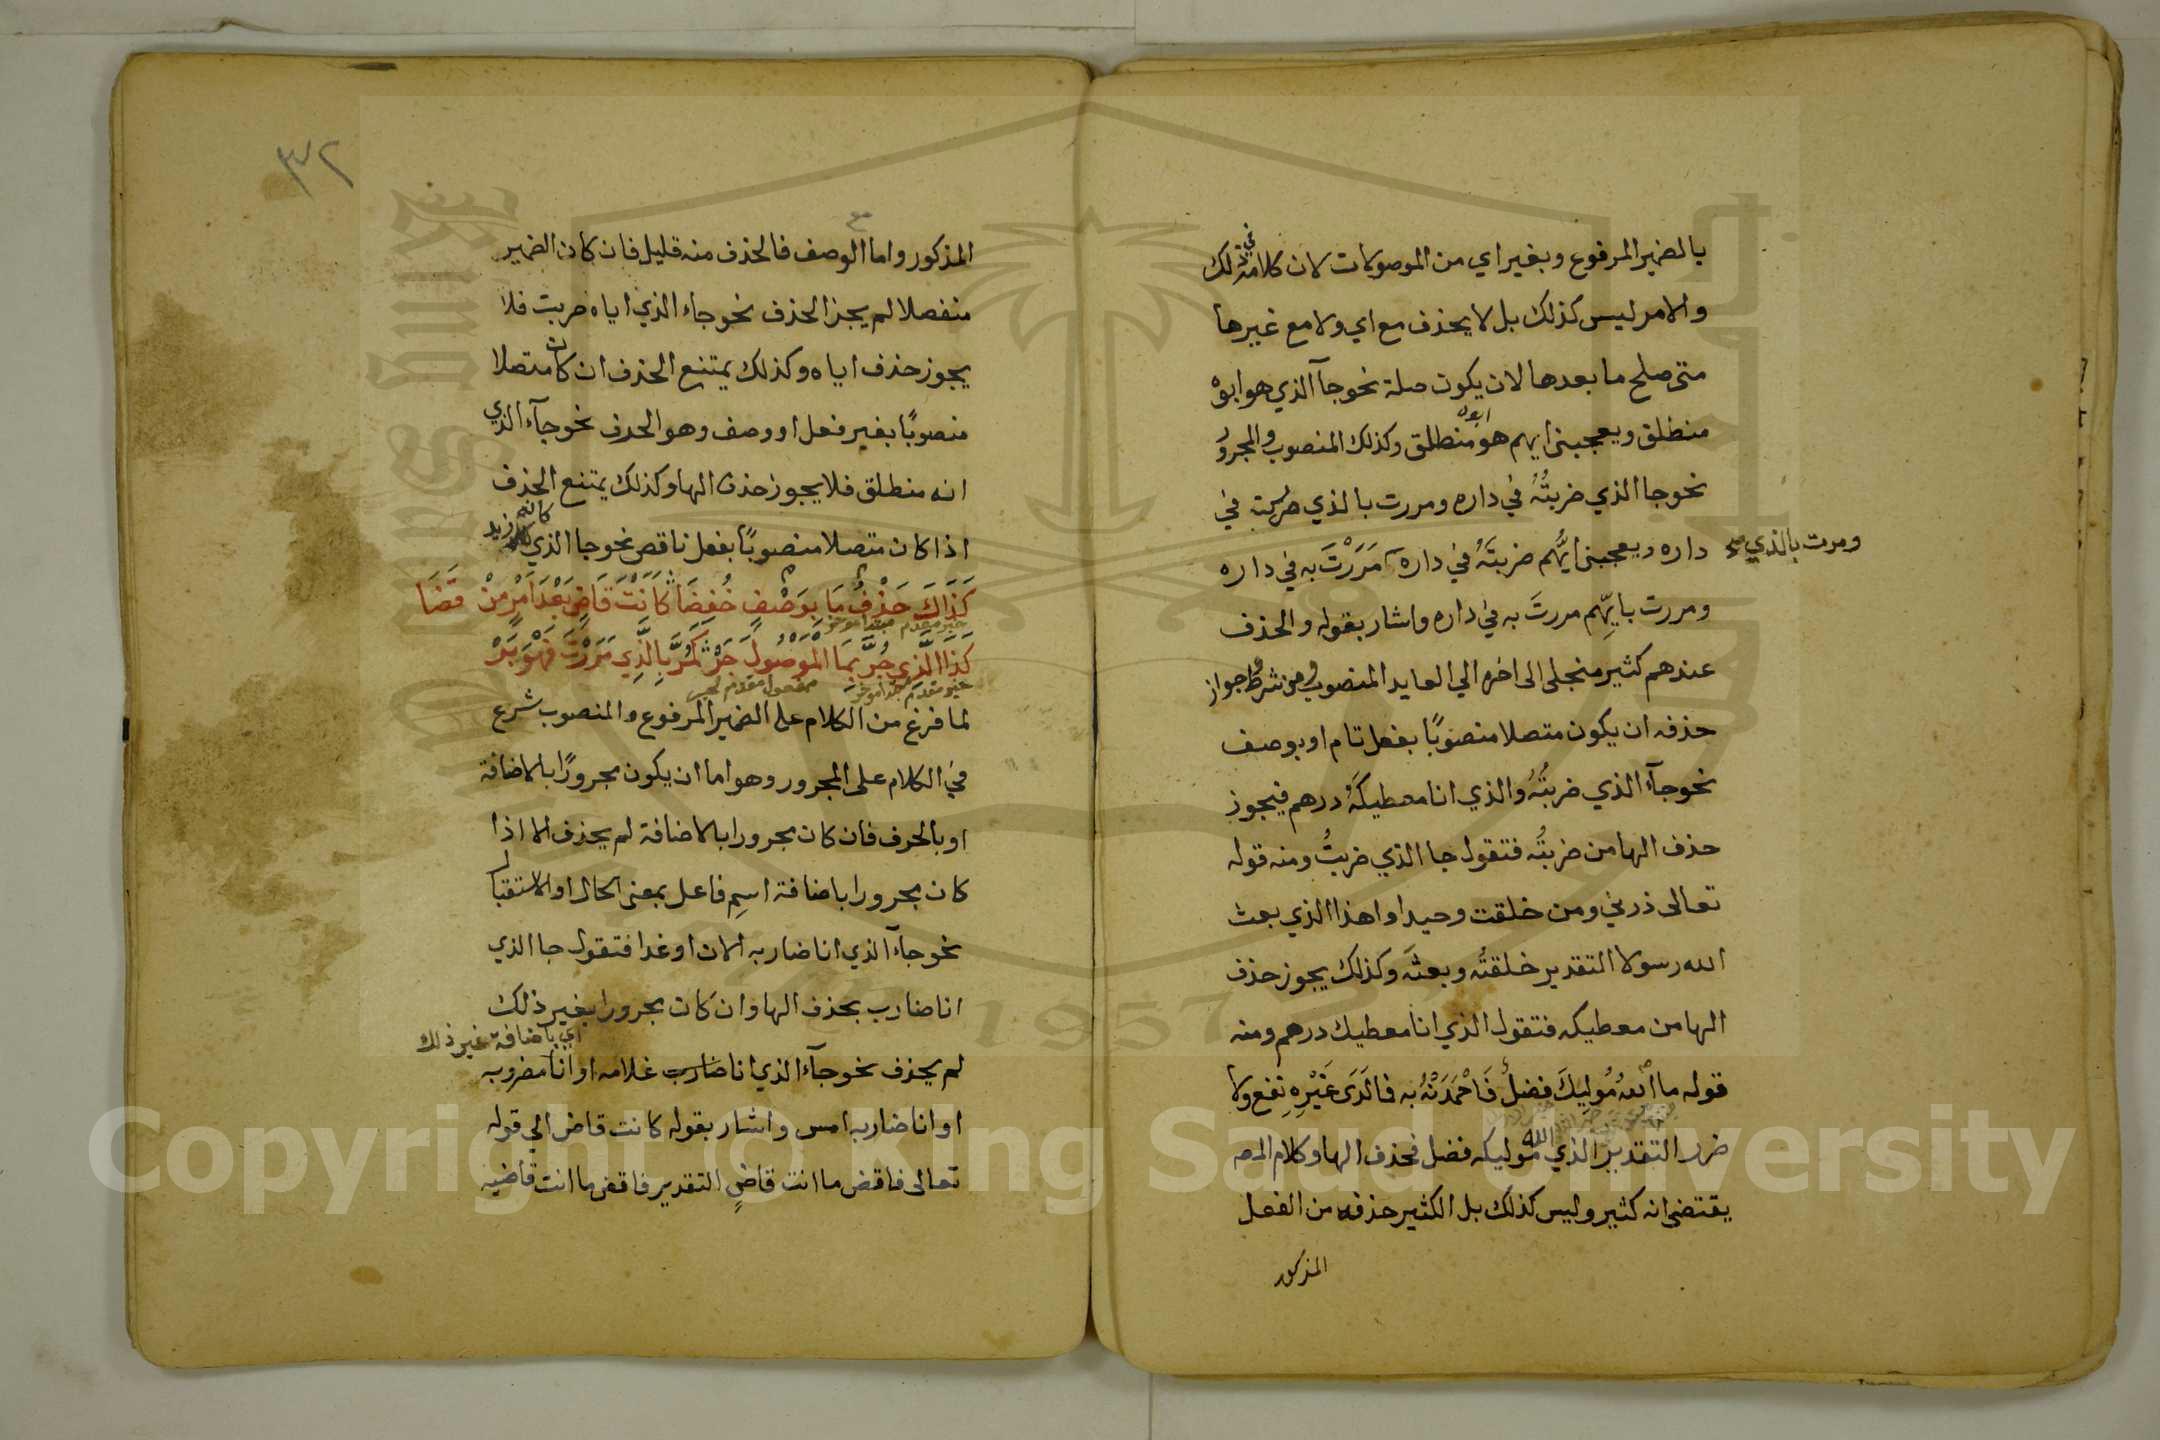 بالضمير المرفوع وبغير اي من الموصولات لان كلامه في ذلك
والامر ليس كذلك بل لا يحذف مع اي ولا مع غيرها
متى صلح ما بعدها لان يكون صلة نحو جآ الذي هو ابوه
منطلق ويعجبني ايهم هو ابوه منطلق وكذلك المنصوب والمجرور
نحو جا الذي ضربتُهُ في داره ومررت بالذي ضربته في
داره ويعجبني ايُّهم ضربتَهُ في داره مَرَرْتَ به في داره
ومررت بالذي
ومررت بايِّهم مررتَ به في داره واشار بقوله والحذف
عندهم كثير منجلي الى اخره الي العايد المنصوب وهو من شرط جواز
حذفه ان يكون متصلا منصوبًا بفعل تام او بوصف
نحو جآء الذي ضربتُهُ والذي انا معطيكَهُ درهم فيجوز
حذف الها من ضربتُه فتقول جا الذي ضربتُ ومنه قوله
تعالى ذرني ومن خلقت وحيدا واهذا الذي بعث
الله رسولا التقدير خلقتُه وبعثَه وكذلك يجوز حذف
الها من معطيكه فتقول الذي انا معطيك درهم ومنه
قوله ما اللهُ مُولِيكَ فضلٌ فَاحْمَدَنْهُ به فما لَدَى غَيْرِهِ نفع ولا
ضرر التقدير الذي الله موليكه فضل فحذف الها وكلام المص
يقتضي انه كثير وليس كذلك بل الكثير حذفه من الفعل
المذكور
٣٢
المذكور واما الوصف فالحذف منه قليل فان كان الضمير
منفصلا لم يجز الحذف نحو جاء الذي اياه ضربت فلا
يجوز حذف اياه وكذلك يمتنع الحذف ان كان متصلا
منصوبًا بغير فعل او وصف وهو الحرف نحو جآء الذي
انه منطلق فلا يجوز حذف الها وكذلك يمتنع الحذف
اذا كان متصلا منصوبًا بفعل ناقص نحو جا الذي كانه زيد
كَذَاكَ حَذْفُ مَا بِوَصْفٍ خُفِضَا كَأَنْتَ قَاضٍ بَعْدَ أَمْرٍ مِنْ قَضَا
خبر مقدم مبتدا موخر
كَذَا الَّذِي جُرَّ بِمَا الْمَوْصُولَ جَرْ كَمُرَّ بِالَّذِي مَرَرْتَ فَهْوَ بَرْ
خبر مقدم مبتدا موخر مفعول مقدم لجر
لما فرغ من الكلام على الضمير المرفوع والمنصوب شرع
في الكلام على المجرور وهو اما ان يكون مجرورًا بالاضافة
او بالحرف فان كان مجرورا بالاضافة لم يحذف الا اذا
كان مجرورا باضافة اسم فاعل بمعنى الحال او الاستقبال
نحو جآء الذي انا ضاربه الان او غدا فتقول جا الذي
انا ضارب بحذف الها وان كان مجرورا بغير ذلك
اي باضافة غير ذلك
لم يحذف نحو جآء الذي انا ضارب غلامه او انا مضروبه
او انا ضاربه امس واشار بقوله كانت قاض الي قوله
تعالى فاقض ما انت قاضٍ التقدير فاقض ما انت قاضيه
Copyright © King Saud University
1957